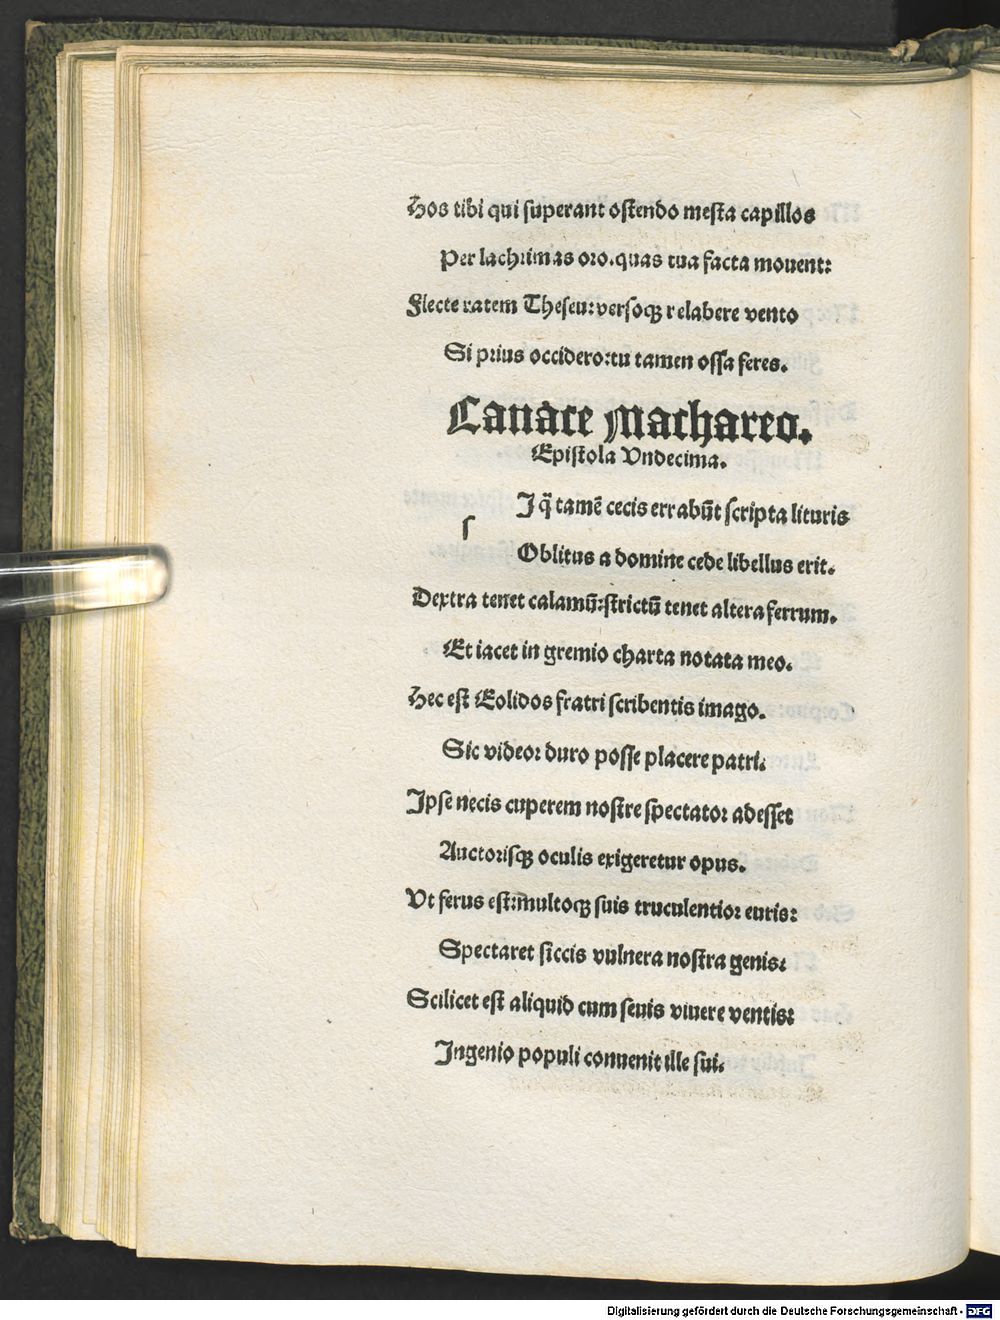 Hos tibi qui superant ostendo mesta capillos
Per lachrimas oro.quas tua facta mouent:
Flecte ratem Theseu:versoqꝫ relabere vento
Si prius occidero:tu tamen ossa feres.
Canace Machareo.
Epistola Vndecima.
s
I q̃ tamẽ cecis errabũt scripta lituris
Oblitus a domine cede libellus erit.
Dextra tenet calamũ:strictũ tenet altera ferrum.
Et iacet in gremio charta notata meo.
Hec est Eolidos fratri scribentis imago.
Sic videor duro posse placere patri.
Ipse necis cuperem nostre spectator adesset
Auctorisqꝫ oculis exigeretur opus.
Vt ferus est:multoqꝫ suis truculentior euris:
Spectaret siccis vulnera nostra genis:
Scilicet est aliquid cum seuis viuere ventis:
Ingenio populi conuenit ille sui.
Digitalisierung gefördert durch die Deutsche Forschungsgemeinschaft - DFG